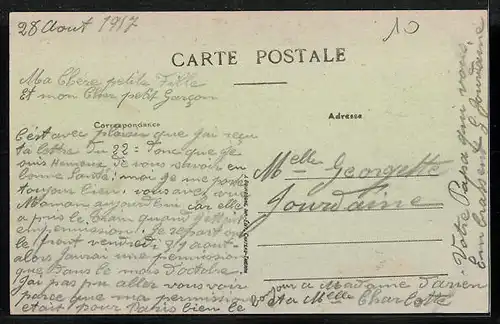 28 Aout 1917
10
CARTE POSTALE
Ma Chere petite Fille
Et mon Cher petit Garçon
Correspondance
Adresse
C'est avec plaisir que j'ai reçu
ta lettre du 22: donc que je
suis Heureux de vous savoir en
bonne Santé: moi je me porte
toujour bien. vous avez vu
Maman aujourd'hui car elle
a pris le train quand j'etait
em permission. Je repart sur
le front vendredi 31 aout
alors j'aurai une permission
que dans le mois d'octobre.
J'ai pas pu aller vous voir
parce que ma permission
etait pour Paris bien le
Melle Georgette
Jourdaine
bonjour a Madame Darien
et a Melle Charlotte
Votre Papa qui vous
Embrassent G Jourdaine